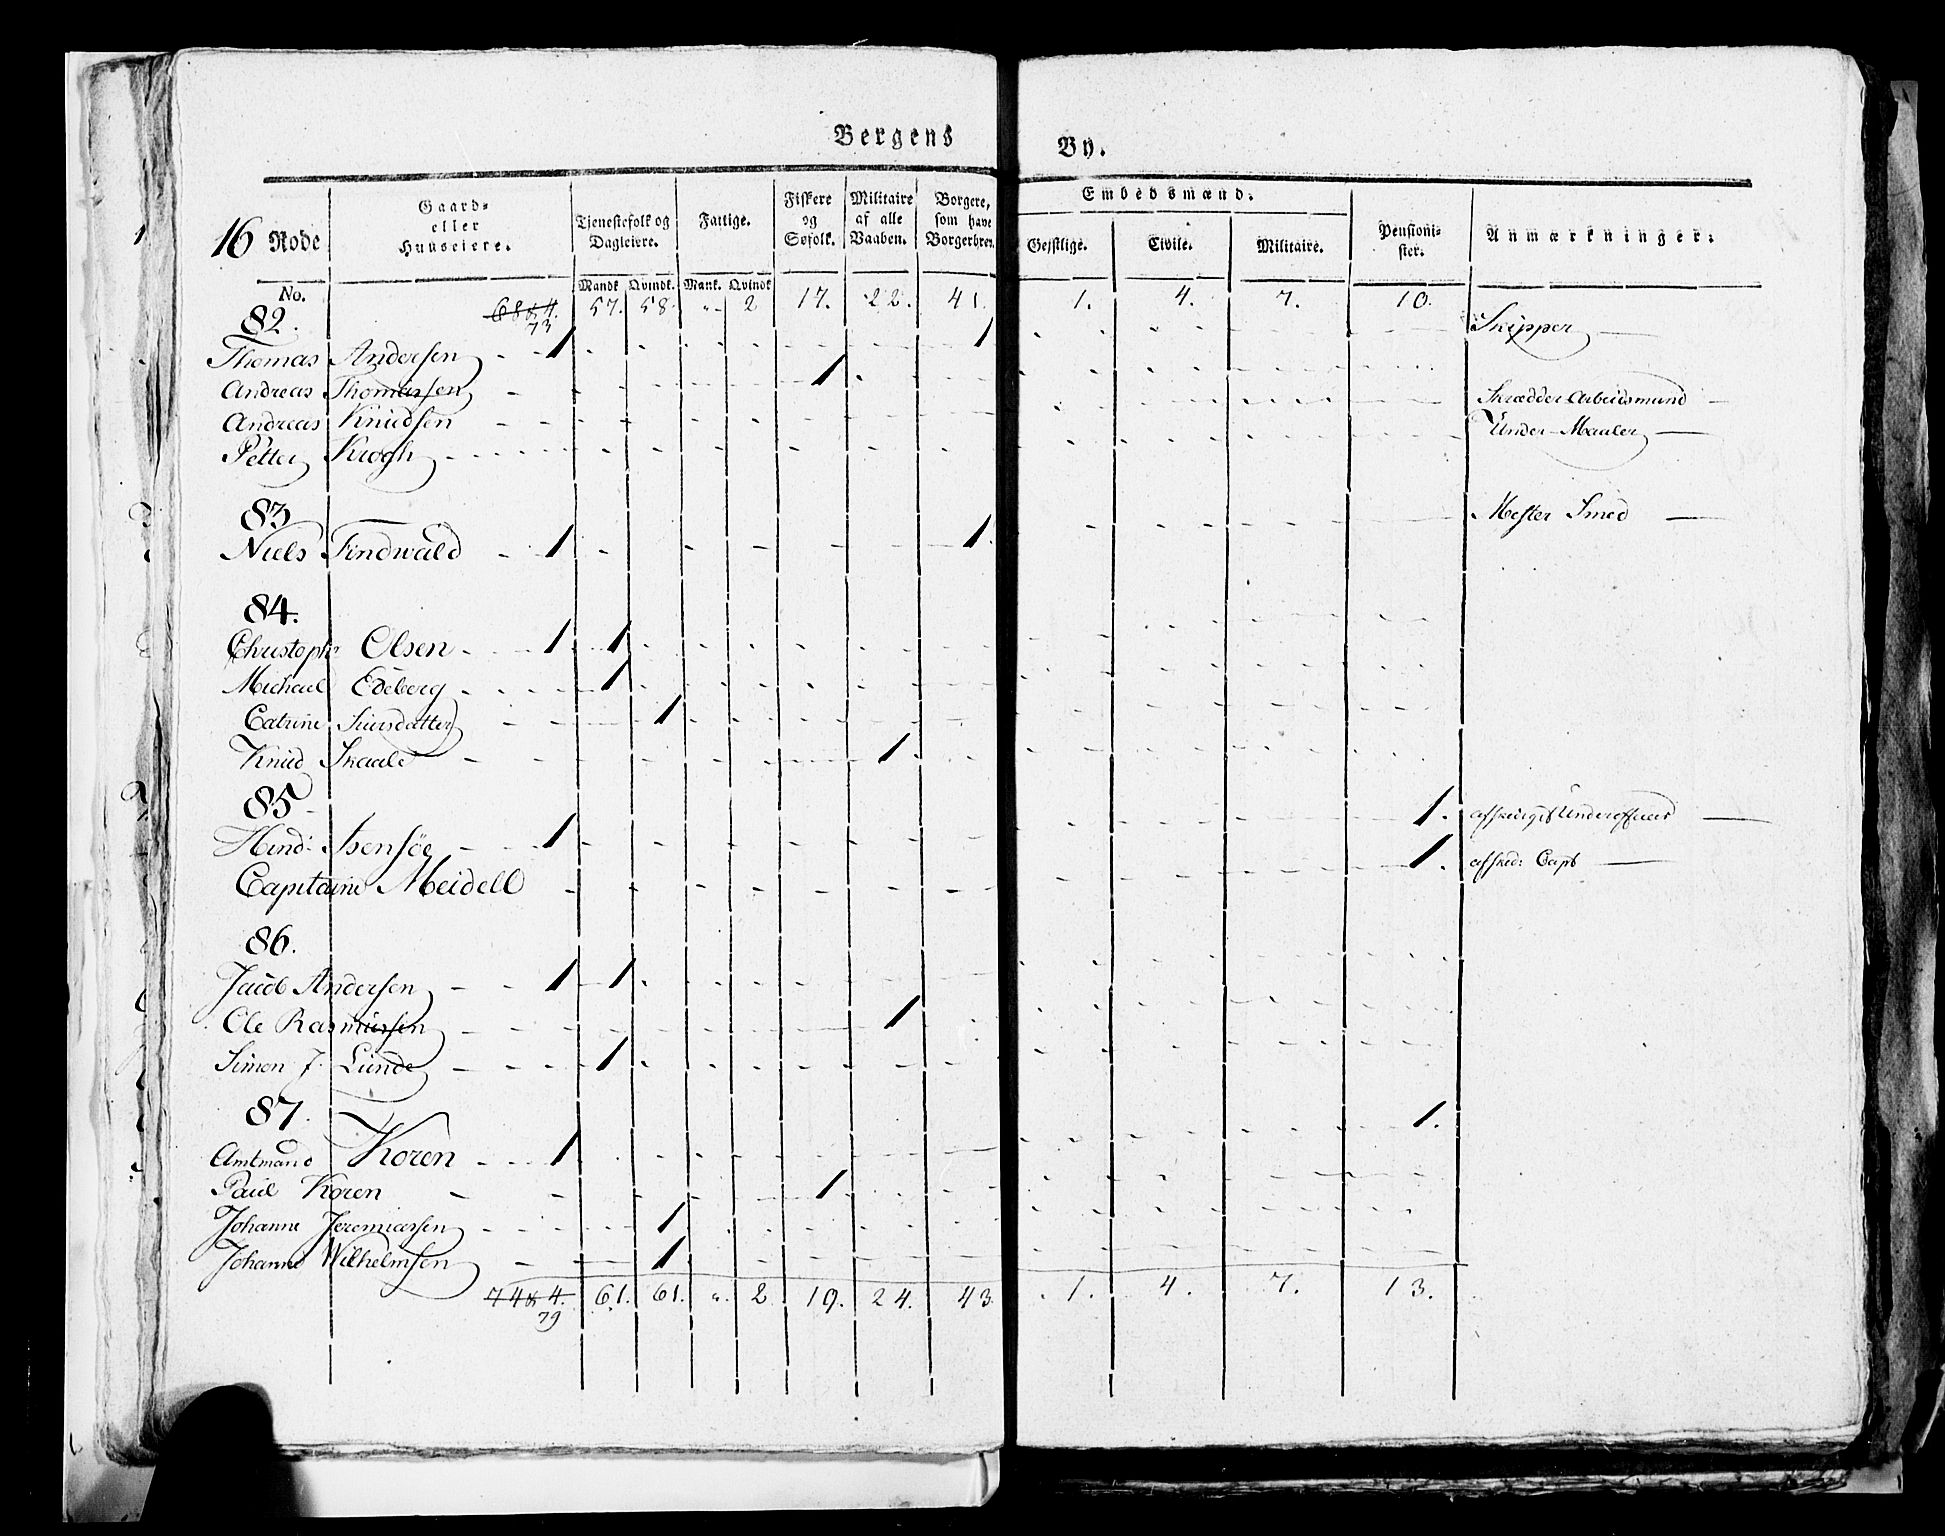 Bergens By.
16 Rode
Gaard- eller Huuseiere.
Tjenestefolk og Dagleiere.
Fattige.
Fiskere og Søfolk.
Militaire af alle Vaaben.
Borgere, som have Borgerbrev.
Embedsmænd.
Geistlige.
Civile.
Militaire.
Pensionister.
Anmærkninger.
No. Mandk Qvindk. Mank. Qvindk
68 & 4. 57. 58. „ 2 17. 22. 41. 1. 4. 7. 10.
73
82.
Thomas Andersen 1 1 Skipper
Andreas Thomassen 1
Andreas Knudsen Skrædder Arbeidsmand
Petter Krogh Under-Maaler
83
Niels Findwald 1 1. Mester Smed
84.
Christoph: Olsen 1 1
Michael Edeberg 1
Catrine Siursdatter 1
Knud Skaale 1
85
Hind: Isensöe 1 1. afskediget Underofficer
Capitaine Meidell 1. afsked: Capt
86.
Jacob Andersen 1 1
Ole Rasmussen 1
Simon J. Lunde 1
87.
Amtmand Koren 1 1.
Paul Koren 1
Johanne Jeremiassen 1
Johanne Wilhelmsen 1
74 & 4. 61. 61. „ 2 19. 24. 43 1. 4. 7. 13.
79